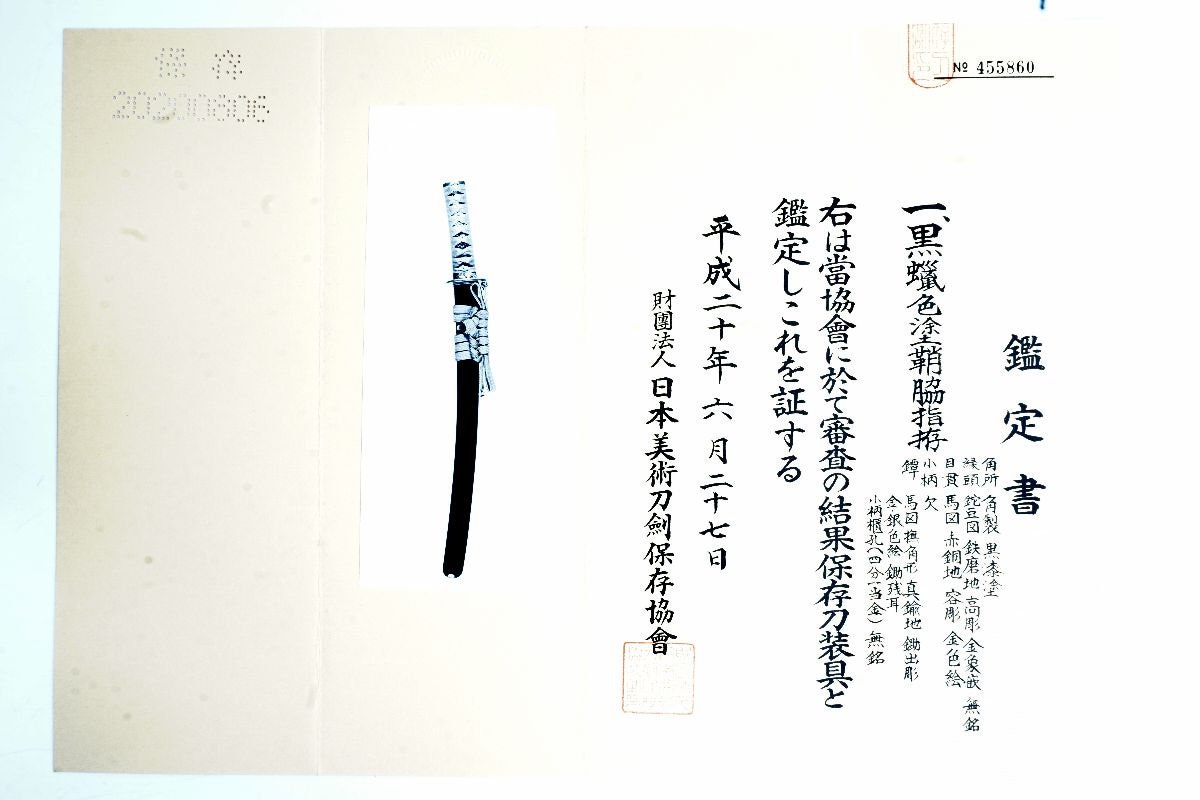 № 455860
鑑定書
一、黒蠟色塗鞘脇指拵
角所 角製 黒漆塗
縁頭 鉈豆図 鉄磨地 高彫 金象嵌 無銘
目貫 馬図 赤銅地 容彫 金色絵
小柄 欠
鐔 馬図 撫角形 真鍮地 鋤出彫
金・銀色絵 鋤残耳
小柄櫃孔(四分一当金) 無銘
右は當協會に於て審査の結果保存刀装具と
鑑定しこれを証する
平成二十年六月二十七日
財團法人 日本美術刀劍保存協會
保存
20200606